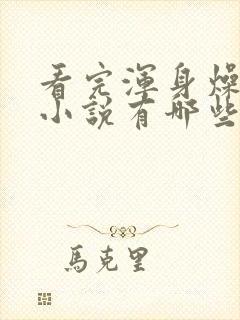 看完渾身燥
小說有哪些
馬克里